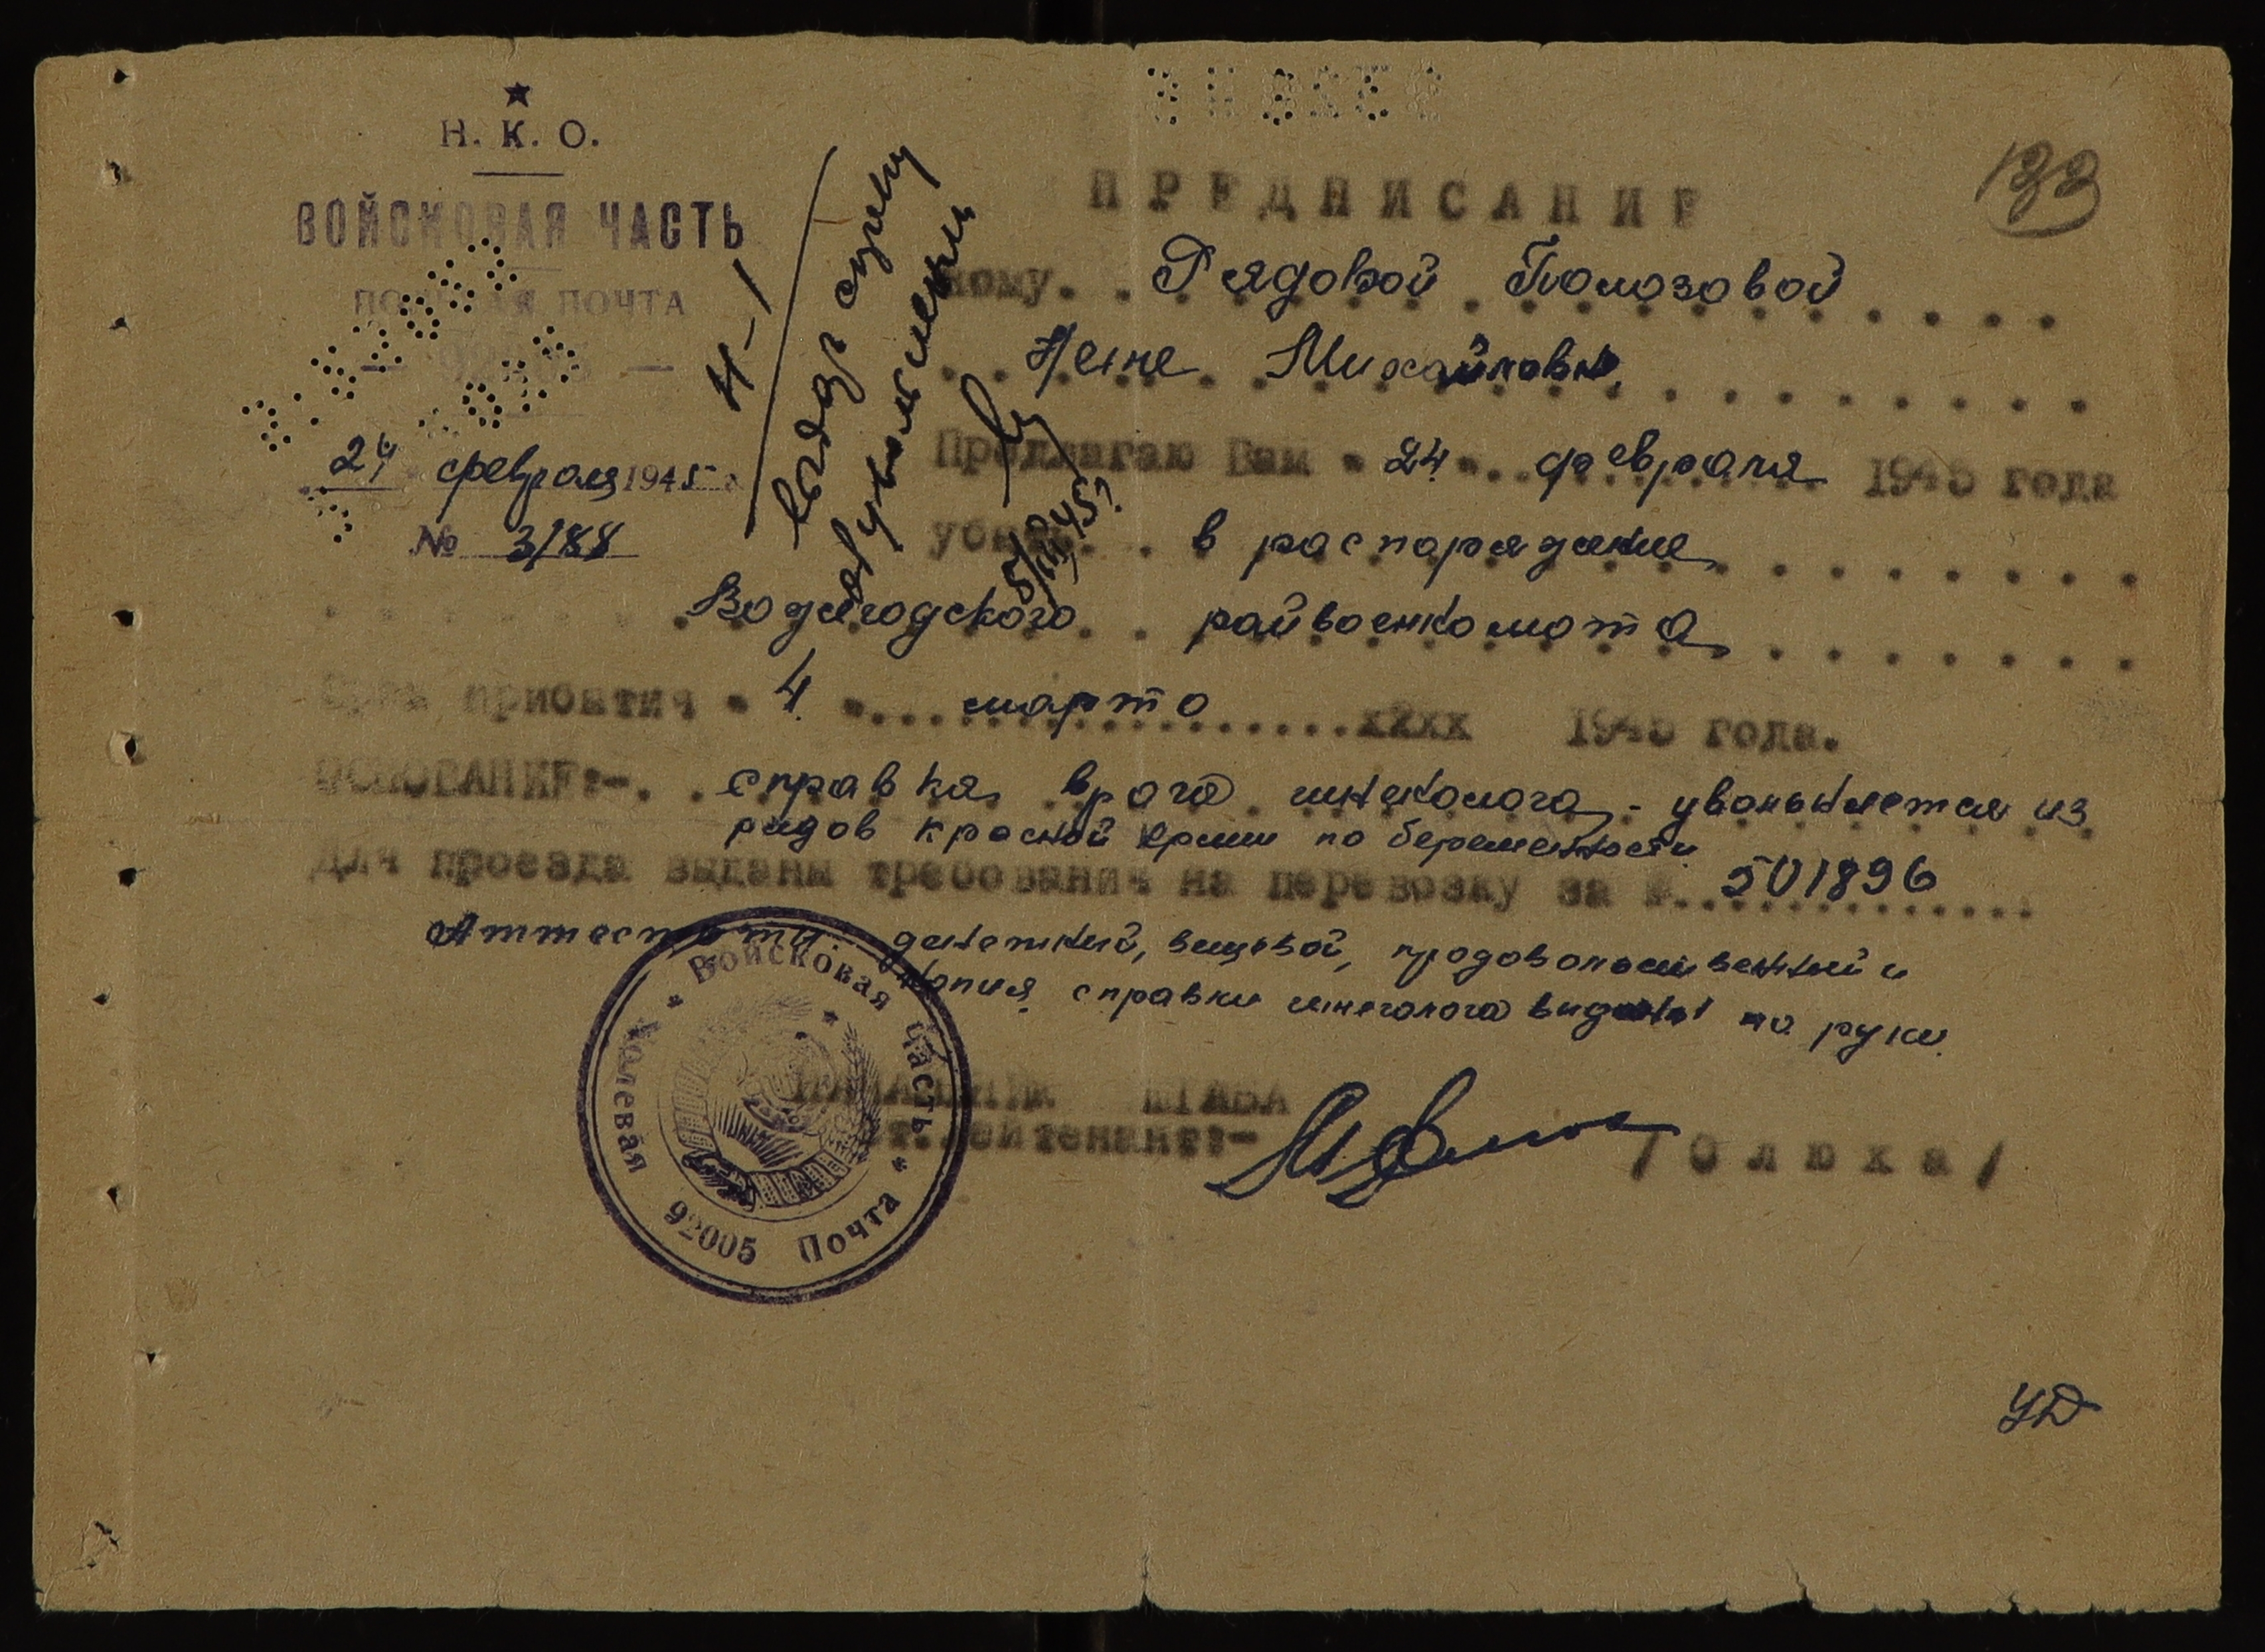 Н. К. О.
ВОЙСКОВАЯ ЧАСТЬ
ПОЛЕВАЯ ПОЧТА
24 февраля 1945 г.
№ 3/88
Н-1
133
ПРЕДПИСАНИЕ
Кому. Рядовой Помозовой
Нене Михайловне
Предлагаю Вам "24" февраля 1945 года
убыть в распоряжение
Вожегодского райвоенкомата
Срок прибытия "4" марта 1945 года.
ОСНОВАНИЕ:- справка врача гинеколога - увольняется из
рядов Красной Армии по беременности
Для проезда выданы требования на перевозку за № 501896
Аттестаты: денежный, вещевой, продовольственный и
копия справки гинеколога выданы на руки
НАЧАЛЬНИК ШТАБА
ст. лейтенант:- /Олюха/
Войсковая часть
Полевая Почта 92005
УД